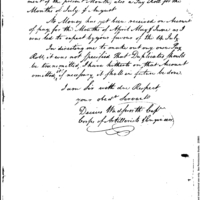 ment of the present Month, also a Pay Roll for the
Months of July & August
No Money has yet been received on Account
of pay for the Months of April May & June as I
was led to expect by your favor of the 14 July
In directing me to make out my
Roll it was not specified that Duplicates should
be transmitted, I have hitherto on that Account
omitted, if necessary it shall in future be done.
I am Sir with due Respect
your obed.t Servant
Decius Wadsworth Capt
Corps of Artillerists & Engineers